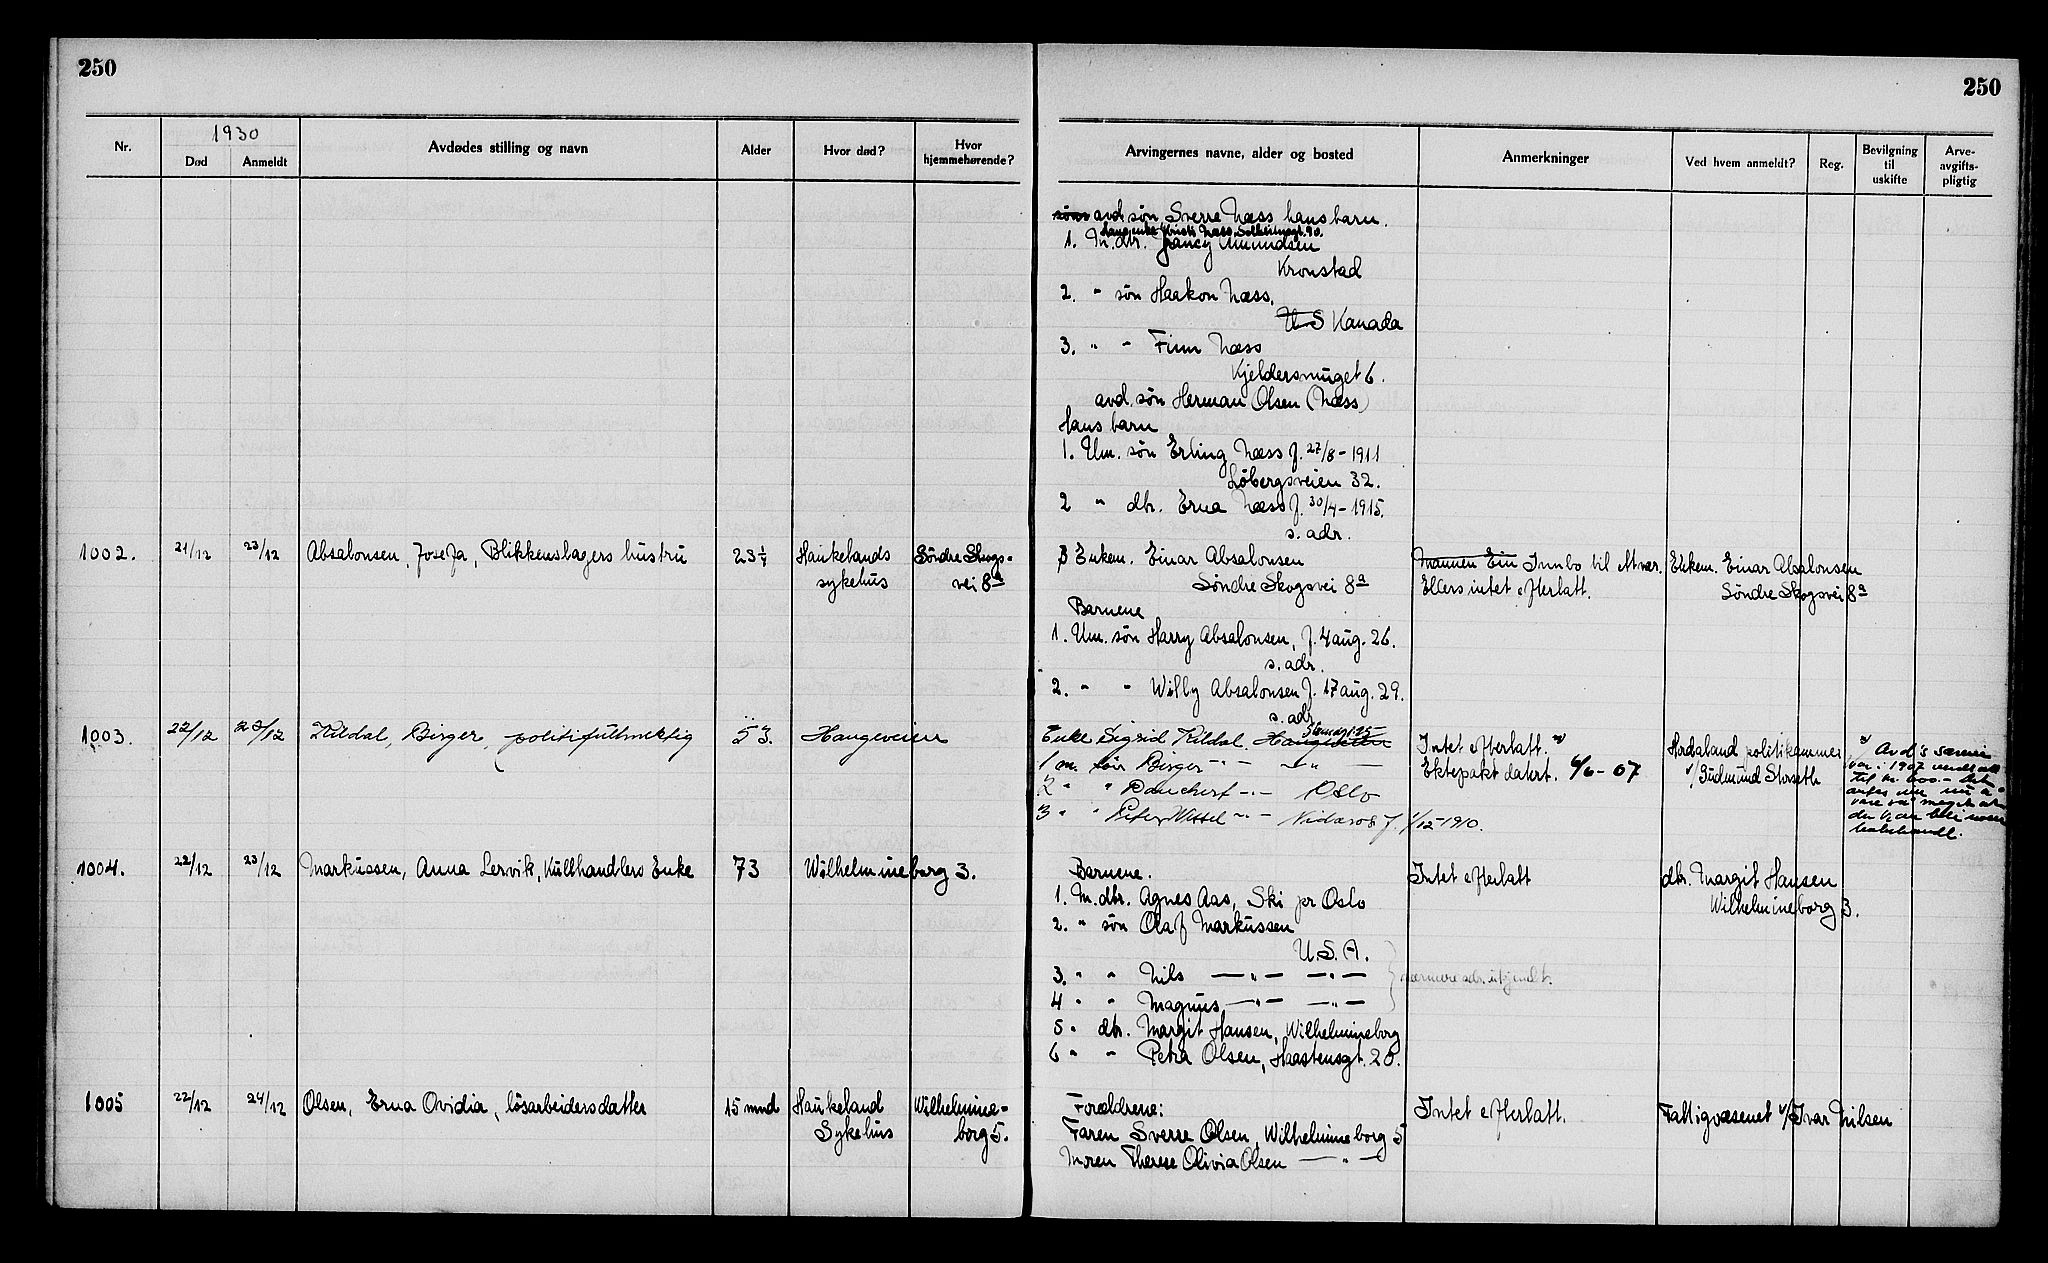 250
250
Nr.
1930
Død
Anmeldt
Avdødes stilling og navn
Alder
Hvor død?
Hvor
hjemmehørende?
Arvingernes navne, alder og bosted
Anmerkninger
Ved hvem anmeldt?
Reg.
Bevilgning
til
uskifte
Arve-
avgifts-
pligtig
avd. søn Sverre Næss hans barn.
hans enke Næss, Solheimsgt. 90.
1. M. dtr. Fancy Amundsen
Kronstad
2. " søn Haakon Næss,
U S Kanada
3. " " Finn Næss
Kjeldersmuget 6.
avd. søn Herman Olsen (Næss)
Hans barn
1. Um. søn Erling Næss f. 27/8-1911
Løbergsveien 32.
2 " dtr. Erna Næss f. 30/4-1915.
s. adr.
1002. 21/12 23/12 Absalonsen, Josefa, Blikkenslagers hustru 23 3/4 Haukelands Søndre Skogs-
sykehus vei 8a
Enkem. Einar Absalonsen
Søndre Skogsvei 8a
Mannen Ein Innbo til
Ellers intet efterlatt.
Enkem. Einar Absalonsen
Søndre Skogsvei 8a
Barnene
1. Um. søn Harry Absalonsen, f. 4 aug. 26.
s. adr.
2. " " Willy Absalonsen f. 17 aug. 29.
s. adr.
1003. 22/12 23/12 Kildal, Birger, politifullmektig 53. Haugeveien
Enke Sigrid Kildal, Haugeveien
1 m. søn Birger -"- -"-
2 " " Danchert -"- Oslo
3 " " Peter Wessel -"- Nidaros f. 1/12-1910.
Intet efterlatt. x)
Ektepakt datert. 6/6-07
Hordaland politikammer
v/ Gudmund Storseth
x) Avd's særeie
var i 1907 verdsatt
til kr. 600.-
1004. 22/12 23/12 Markussen, Anna Lervik, Kullhandlers Enke 73 Wilhelmineborg 3.
Barnene.
1. M. dtr. Agnes Aas, Ski pr Oslo
2. " søn Olaf Markussen
U.S.A.
3. " " Nils —"— —"—
4 " " Magnus —"— —"—
nærmere adr. ukjendt.
5 " dtr. Margit Hansen, Wilhelmineborg
6 " " Petra Olsen, Haastensgt. 20.
Intet efterlatt
dtr. Margit Hansen
Wilhelmineborg 3.
1005 22/12 24/12 Olsen, Erna Ovidia, løsarbeidersdatter 15 mnd Haukeland Wilhelmine-
Sykehus borg 5.
Forældrene:
Faren Sverre Olsen, Wilhelmineborg 5
Moren Therese Olivia Olsen —"—
Intet efterlatt.
Fattigvæsenet v/ Ivar Nilsen